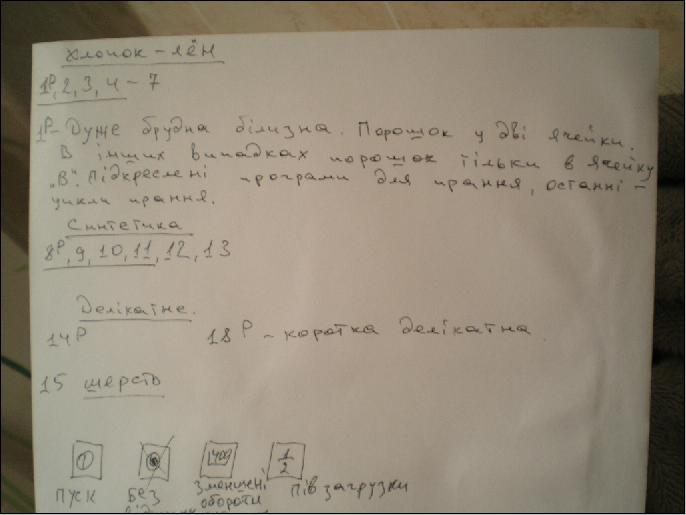 Хлопок - лён
1Р, 2, 3, 4 - 7
1Р - Дуже брудна білизна. Порошок у дві ячейки.
В інших випадках порошок тільки в ячейку
„В". Підкреслені програми для прання, останні -
цикли прання.
Синтетика
8Р, 9, 10, 11, 12, 13
Делікатне.
14Р 18Р - коротка делікатна
15 шерсть
1/2
пуск без зменшені пів загрузки
обороти